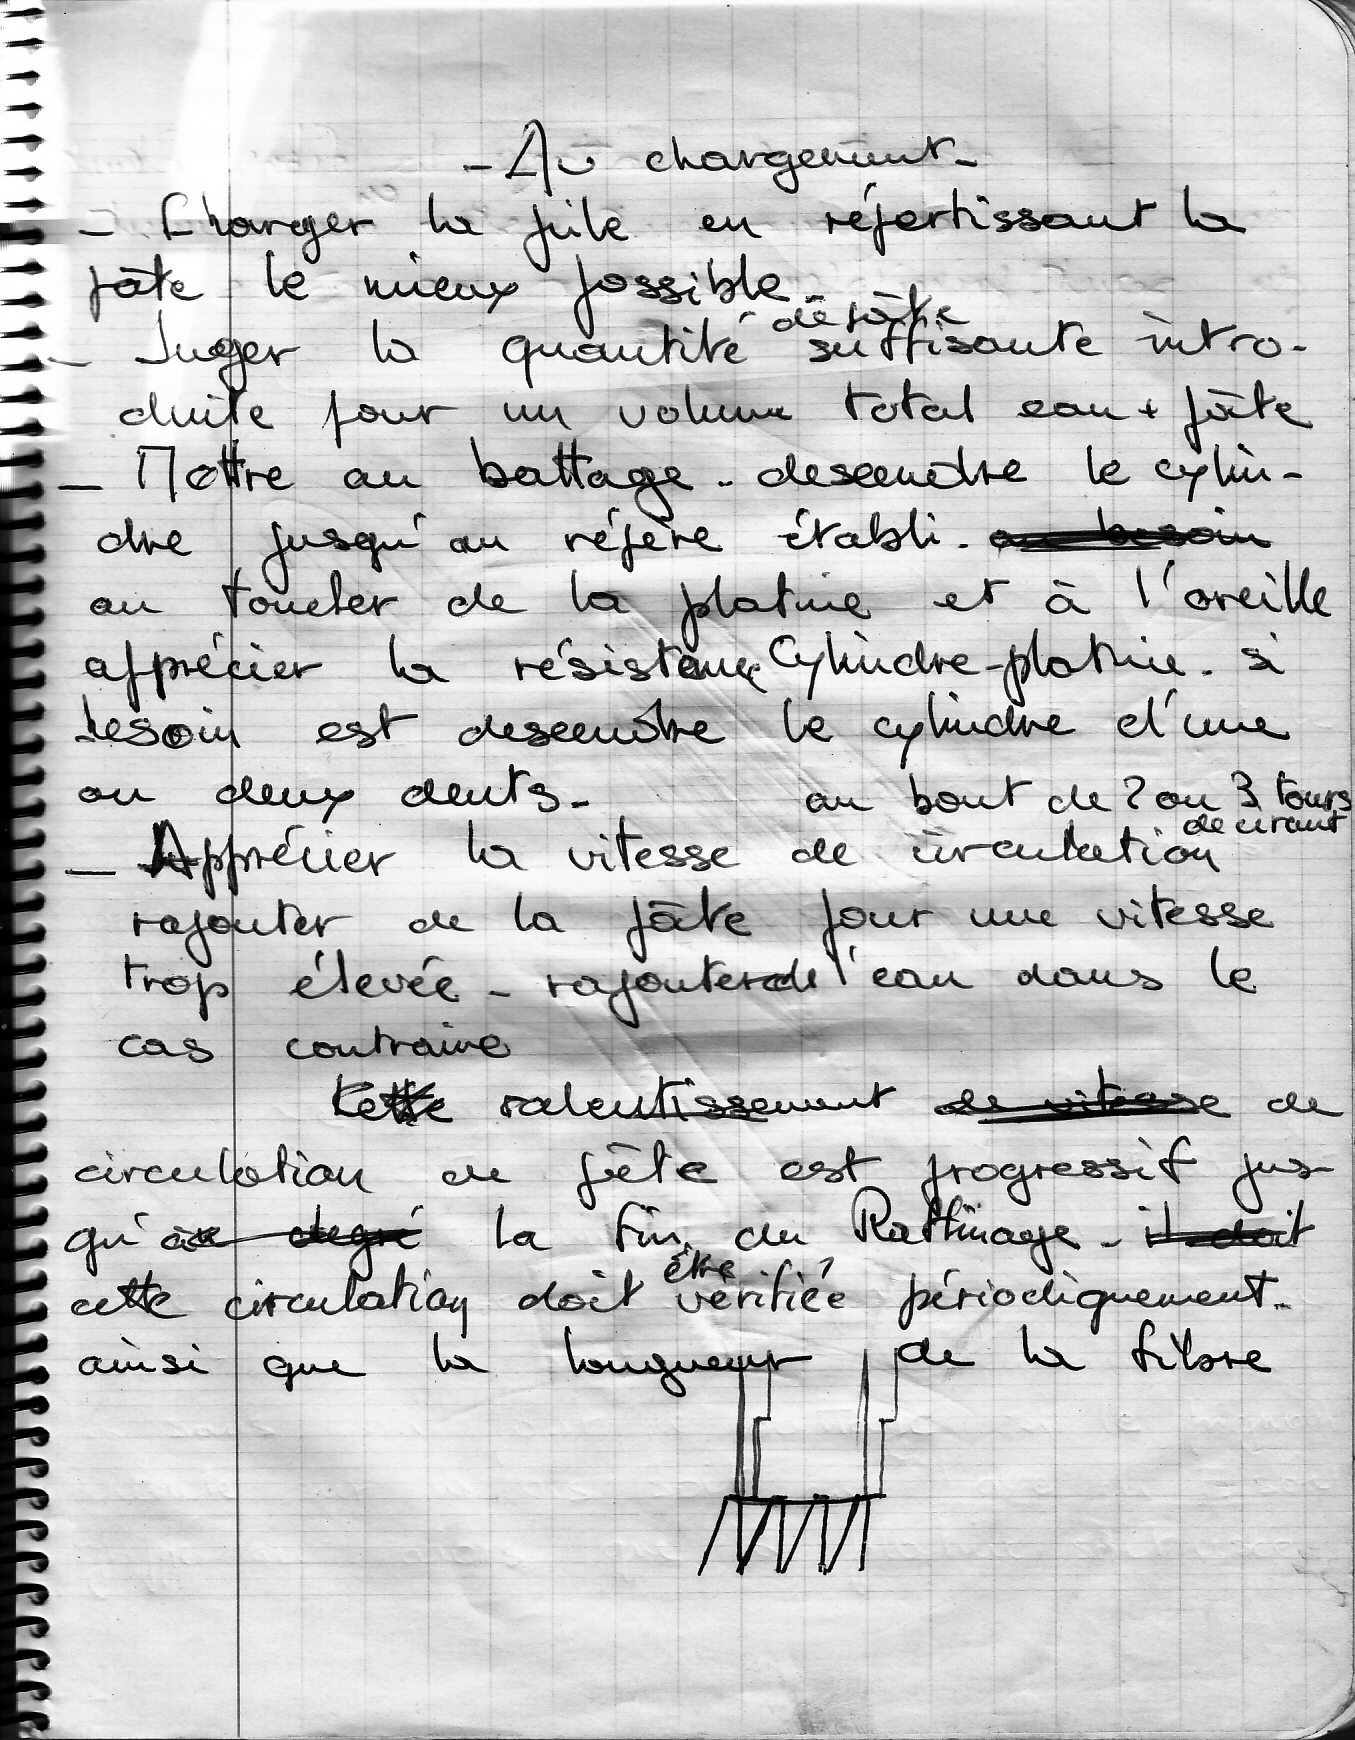 - Au chargement -
- Charger la pile en répertissant la
pâte le mieux possible.
de pâte
- Juger la quantité suffisante intro-
duite pour un volume total eau + pâte
- Mettre au battage - descendre le cylin-
dre jusqu'au repère établi. au besoin
au toucher de la platine et à l'oreille
apprécier la résistance Cylindre-platine. si
besoin est descendre le cylindre d'une
ou deux dents - au bout de 2 ou 3 tours
- Apprécier la vitesse de circulation
rajouter de la pâte pour une vitesse
trop élevée - rajouter de l'eau dans le
cas contraire
Cette ralentissement de vitesse de
circulation de pâte est progressif jus-
qu'à degré la fin du Raffinage - il doit
être
cette circulation doit vérifiée périodiquement.
ainsi que la longueur de la fibre